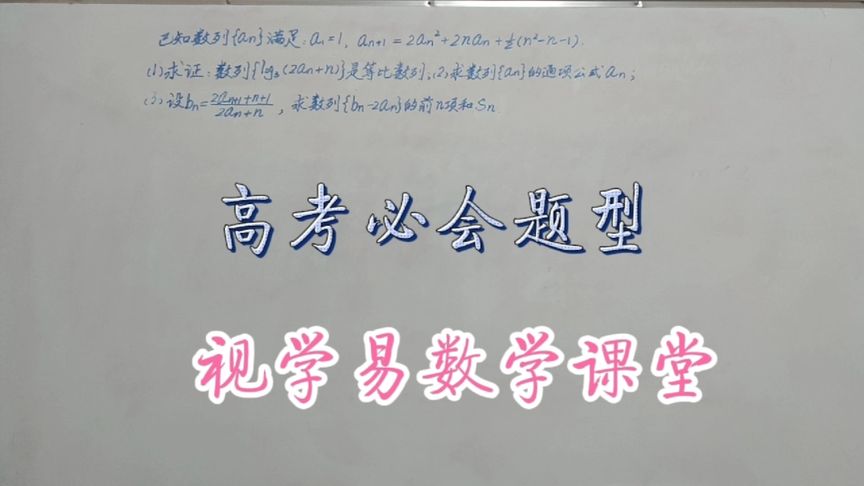 已知数列{an}满足:a₁=1, an+1=2an²+2nan+½(n²-n-1).
(1)求证:数列{log₃(2an+n)}是等比数列;(2)求数列{an}的通项公式an;
(3)设bn=\frac{2an+1+n+1}{2an+n},求数列{bn-2an}的前n项和Sn.
高考必会题型
视学易数学课堂